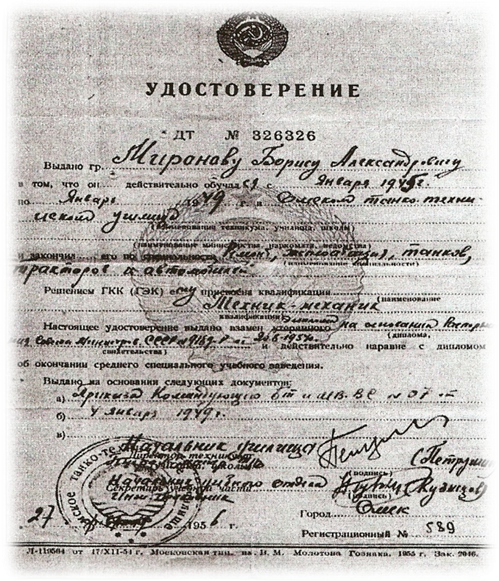 УДОСТОВЕРЕНИЕ
ДТ № 326326
Выдано гр. Миронову Борису Александровичу
в том, что он действительно обучал с я с января 194
по Январь 1949 г. в Омском танко-техни-
ческом училище
(наименование техникума, училища, школы)
(наименование министерства, наркомата, ведомства)
и закончил его по специальности Ремонт, эксплоатация, танков,
(наименование специальности)
тракторов и автомобилей
Решением ГКК (ГЭК) ему присвоена квалификация
Техник-механик (наименование
квалификации)
Настоящее удостоверение выдано взамен утерянного на основании
(диплома,
Совета Министров СССР и действительно наравне с дипломом
свидетельства)
об окончании среднего специального учебного заведения.
Выдано на основании следующих документов:
а) Приказа Командующего БТ и МВ ВС № 07
б) 4 января 1949 г.
в)
Начальник училища
Директор техникума
(подпись)
Начальник учебного отдела
Секретарь учебной части
(подпись)
27 1956 г. Город Омск
Регистрационный № 589
Л-119504 от 17/XII-54 г. Московская тип. им. В. М. Молотова Гознака. 1955 г. Зак. 2046.